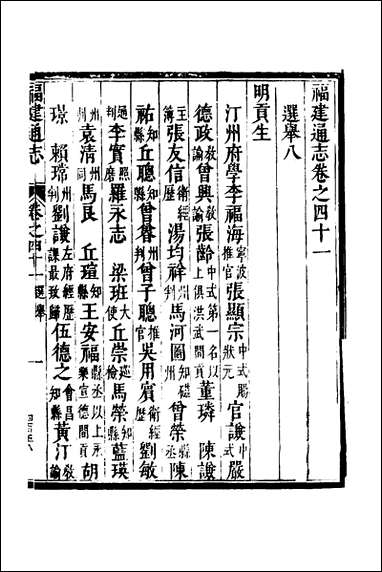 福建通志卷之四十一
選舉八
明貢生
汀州府學李福海寧波推官張顯宗中式賜狀元官謙中式嚴
德政教諭曾興教諭張齡中式第一名以上俱洪武間貢董璘 陳謙
主簿張友信衛經歷湯均祥州判馬河圖知州曾榮縣丞陳
祐知縣丘聰知縣曾睿州判曾子聰推官吳用賓衛經歷劉敏
通判李實照磨羅永志 梁班大使丘崇巡檢馬榮知縣藍瑛
州判袁清州同馬良 丘瑄知縣王安福縣丞以上永樂宣德間貢胡
璟 賴席州判劉謙左府經歷課最致歸伍德之會昌知縣黃汀教諭
福建通志
卷之四十一 選舉
一